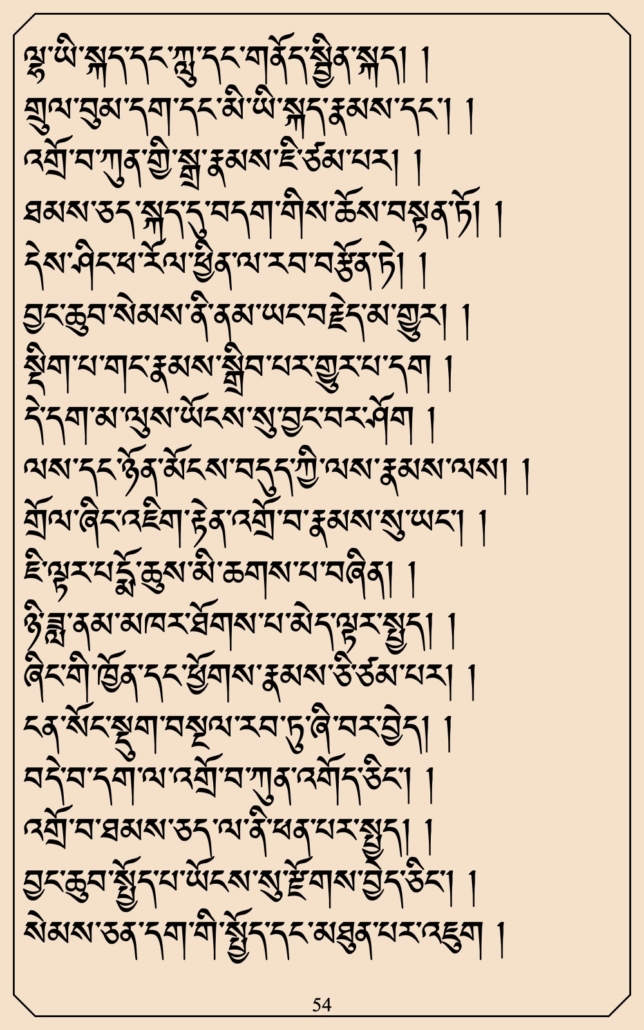 ལྷ་ཡི་སྐད་དང་ཀླུ་དང་གནོད་སྦྱིན་སྐད། །
གྲུལ་བུམ་དག་དང་མི་ཡི་སྐད་རྣམས་དང་། །
འགྲོ་བ་ཀུན་གྱི་སྒྲ་རྣམས་ཇི་ཙམ་པར། །
ཐམས་ཅད་སྐད་དུ་བདག་གིས་ཆོས་བསྟན་ཏོ། །
དེས་ཤིང་ཕ་རོལ་ཕྱིན་ལ་རབ་བརྩོན་ཏེ། །
བྱང་ཆུབ་སེམས་ནི་ནམ་ཡང་བརྗེད་མ་གྱུར། །
སྡིག་པ་གང་རྣམས་སྒྲིབ་པར་གྱུར་པ་དག །
དེ་དག་མ་ལུས་ཡོངས་སུ་བྱང་བར་ཤོག །
ལས་དང་ཉོན་མོངས་བདུད་ཀྱི་ལས་རྣམས་ལས། །
གྲོལ་ཞིང་འཇིག་རྟེན་འགྲོ་བ་རྣམས་སུ་ཡང་། །
ཇི་ལྟར་པདྨོ་ཆུས་མི་ཆགས་པ་བཞིན། །
ཉི་ཟླ་ནམ་མཁར་ཐོགས་པ་མེད་ལྟར་སྤྱད། །
ཞིང་གི་ཁྱོན་དང་ཕྱོགས་རྣམས་ཅི་ཙམ་པར། །
ངན་སོང་སྡུག་བསྔལ་རབ་ཏུ་ཞི་བར་བྱེད། །
བདེ་བ་དག་ལ་འགྲོ་བ་ཀུན་འགོད་ཅིང་། །
འགྲོ་བ་ཐམས་ཅད་ལ་ནི་ཕན་པར་སྤྱད། །
བྱང་ཆུབ་སྤྱོད་པ་ཡོངས་སུ་རྫོགས་བྱེད་ཅིང་། །
སེམས་ཅན་དག་གི་སྤྱོད་དང་མཐུན་པར་འཇུག །
54